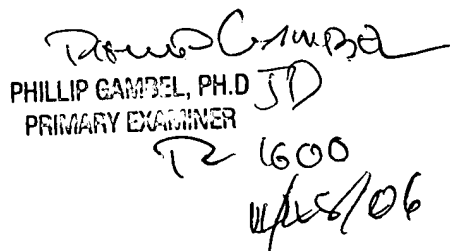 Phillip Gambel
PHILLIP GAMBEL, PH.D JD
PRIMARY EXAMINER
TC 1600